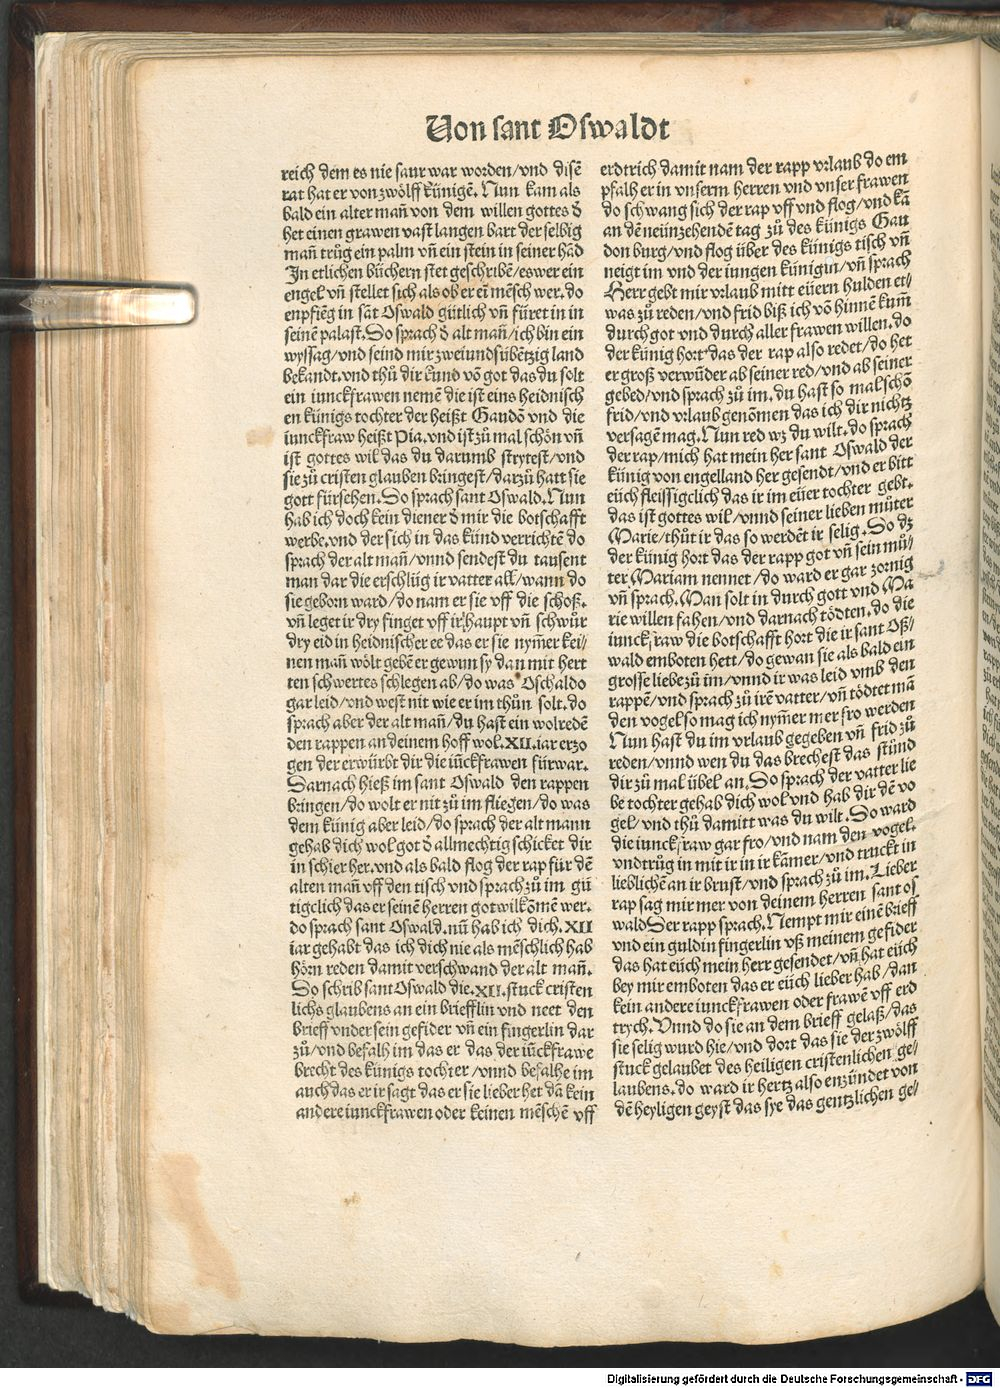 Von sant Oswaldt
reich dem es nie saur war worden/vnd disē
rat hat er von zwölff künigē. Nun kam als
bald ein alter mañ von dem willen gottes d̄
het einen grawen vast langen bart der selbig
mañ trůg ein palm vñ ein stein in seiner hād
In etlichen büchern stet geschribē/es wer ein
engel vñ stellet sich als ob er eī mēsch wer. do
enpfieg in sāt Oswald gütlich vñ füret in in
seinē palast. So sprach d̄ alt mañ/ich bin ein
wyssag/vnd seind mir zweiundsübētzig land
bekandt. vnd thů dir kund vō got das du solt
ein iunckfrawen nemē die ist eins heidnisch
en künigs tochter der heißt Gaudō vnd die
iunckfraw heißt Pia. vnd ist zů mal schön vñ
ist gottes wil das du darumb strytest/vnd
sie zů cristen glauben bringest/darzů hatt sie
gott fürsehen. So sprach sant Oswald. Nun
hab ich doch kein diener d̄ mir die botschafft
werbe. vnd der sich in das künd verrichtē do
sprach der alt mañ/vnnd sendest du tausent
man dar die erschlüg ir vatter all/wann do
sie geborn ward/do nam er sie vff die schoß.
vñ leget ir dry finger vff ir haupt vñ schwůr
dry eid in heidnischer ee das er sie nym̄er kei/
nen mañ wölt gebē er gewun sy dan mit hert
ten schwertes schlegen ab/do was Oschaldo
gar leid/vnd west nit wie er im thůn solt. do
sprach aber der alt mañ/du hast ein wolredē
den rappen an deinem hoff wol. XII. iar erzo
gen der erwürbt dir die iūckfrawen fürwar.
Darnach hieß im sant Oswald den rappen
bringen/do wolt er nit zů im fliegen/do was
dem künig aber leid/do sprach der alt mann
gehab dich wol got d̄ allmechtig schicket dir
in schier her. vnd als bald flog der rap für dē
alten mañ vff den tisch vnd sprach zů im gü
tigclich das er seinē herren got wilkōmē wer.
do sprach sant Oswald. nū hab ich dich. XII
iar gehabt das ich dich nie als mēschlich hab
hörn reden damit verschwand der alt mañ.
So schrib sant Oswald die. XII. stuck cristen
lichs glaubens an ein briefflin vnd neet den
brieff vnder sein gefider vñ ein fingerlin dar
zů/vnd befalh im das er das der iūckfrawe
brecht des künigs tochter/vnnd befalhe im
auch das er ir sagt das er sie lieber het dā kein
andere iunckfrawen oder keinen mēschē vff
erdtrich damit nam der rapp vrlaub do em
pfalh er in vnserm herren vnd vnser frawen
do schwang sich der rap vff vnd flog/vnd kā
an dē neünzehendē tag zů des künigs Gau
don burg/vnd flog über des künigs tisch vñ
neigt im vnd der iungen künigin/vñ sprach
Herr gebt mir vrlaub mitt eüern hulden et/
was zů reden/vnd frid biß ich vō hinnē kum̄
durch got vnd durch aller frawen willen. do
der künig hort das der rap also redet/do het
er groß verwūder ab seiner red/vnd ab seiner
gebed/vnd sprach zů im. du hast so mal schō
frid/vnd vrlaub genōmen das ich dir nichtz
versagē mag. Nun red wz du wilt. do sprach
der rap/mich hat mein her sant Oswald der
künig von engelland her gesendt/vnd er bitt
eüch fleissigclich das ir im eüer tochter gebt.
das ist gottes wil/vnnd seiner lieben můter
Marie/thůt ir das so werdēt ir selig. So dz
der künig hort das der rapp got vñ sein můs/
ter Mariam nennet/do ward er gar zornig
vñ sprach. Man solt in durch gott vnd Ma
rie willen fahen/vnd darnach tödten. do die
iunckfraw die botschafft hort die ir sant Oß/
wald emboten hett/do gewan sie als bald ein
grosse liebe zů im/vnnd ir was leid vmb den
rappē/vnd sprach zů irē vatter/vñ tödtet mā
den vogel so mag ich nym̄er mer fro werden
Nun hast du im vrlaub gegeben vñ frid zů
reden/vnnd wen du das brechest das stünd
dir zů mal übel an. So sprach der vatter lie
be tochter gehab dich wol vnd hab dir dē vo
gel/vnd thů damitt was du wilt. So ward
die iunckfraw gar fro/vnd nam den vogel.
vnd trůg in mit ir in ir kām̄er/vnd truckt in
lieblichē an ir brust/vnd sprach zů im. Lieber
rap sag mir mer von deinem herren sant os
wald Der rapp sprach. Nempt mir einē brieff
vnd ein guldin fingerlin vß meinem gefider
das hat eüch mein herr gesendet/vñ hat eüch
bey mir emboten das er eüch lieber hab/dan
kein andere iunckfrawen oder frawē vff erd
trych. Vnnd do sie an dem brieff gelaß/das
sie selig wurd hie/vnd dort das sie der zwölff
stuck gelaubet des heiligen cristenlichen ge/
laubens. do ward ir hertz also enzündet von
dē heyligen geyst das sye das gentzlichen ge/
Digitalisierung gefördert durch die Deutsche Forschungsgemeinschaft - DFG